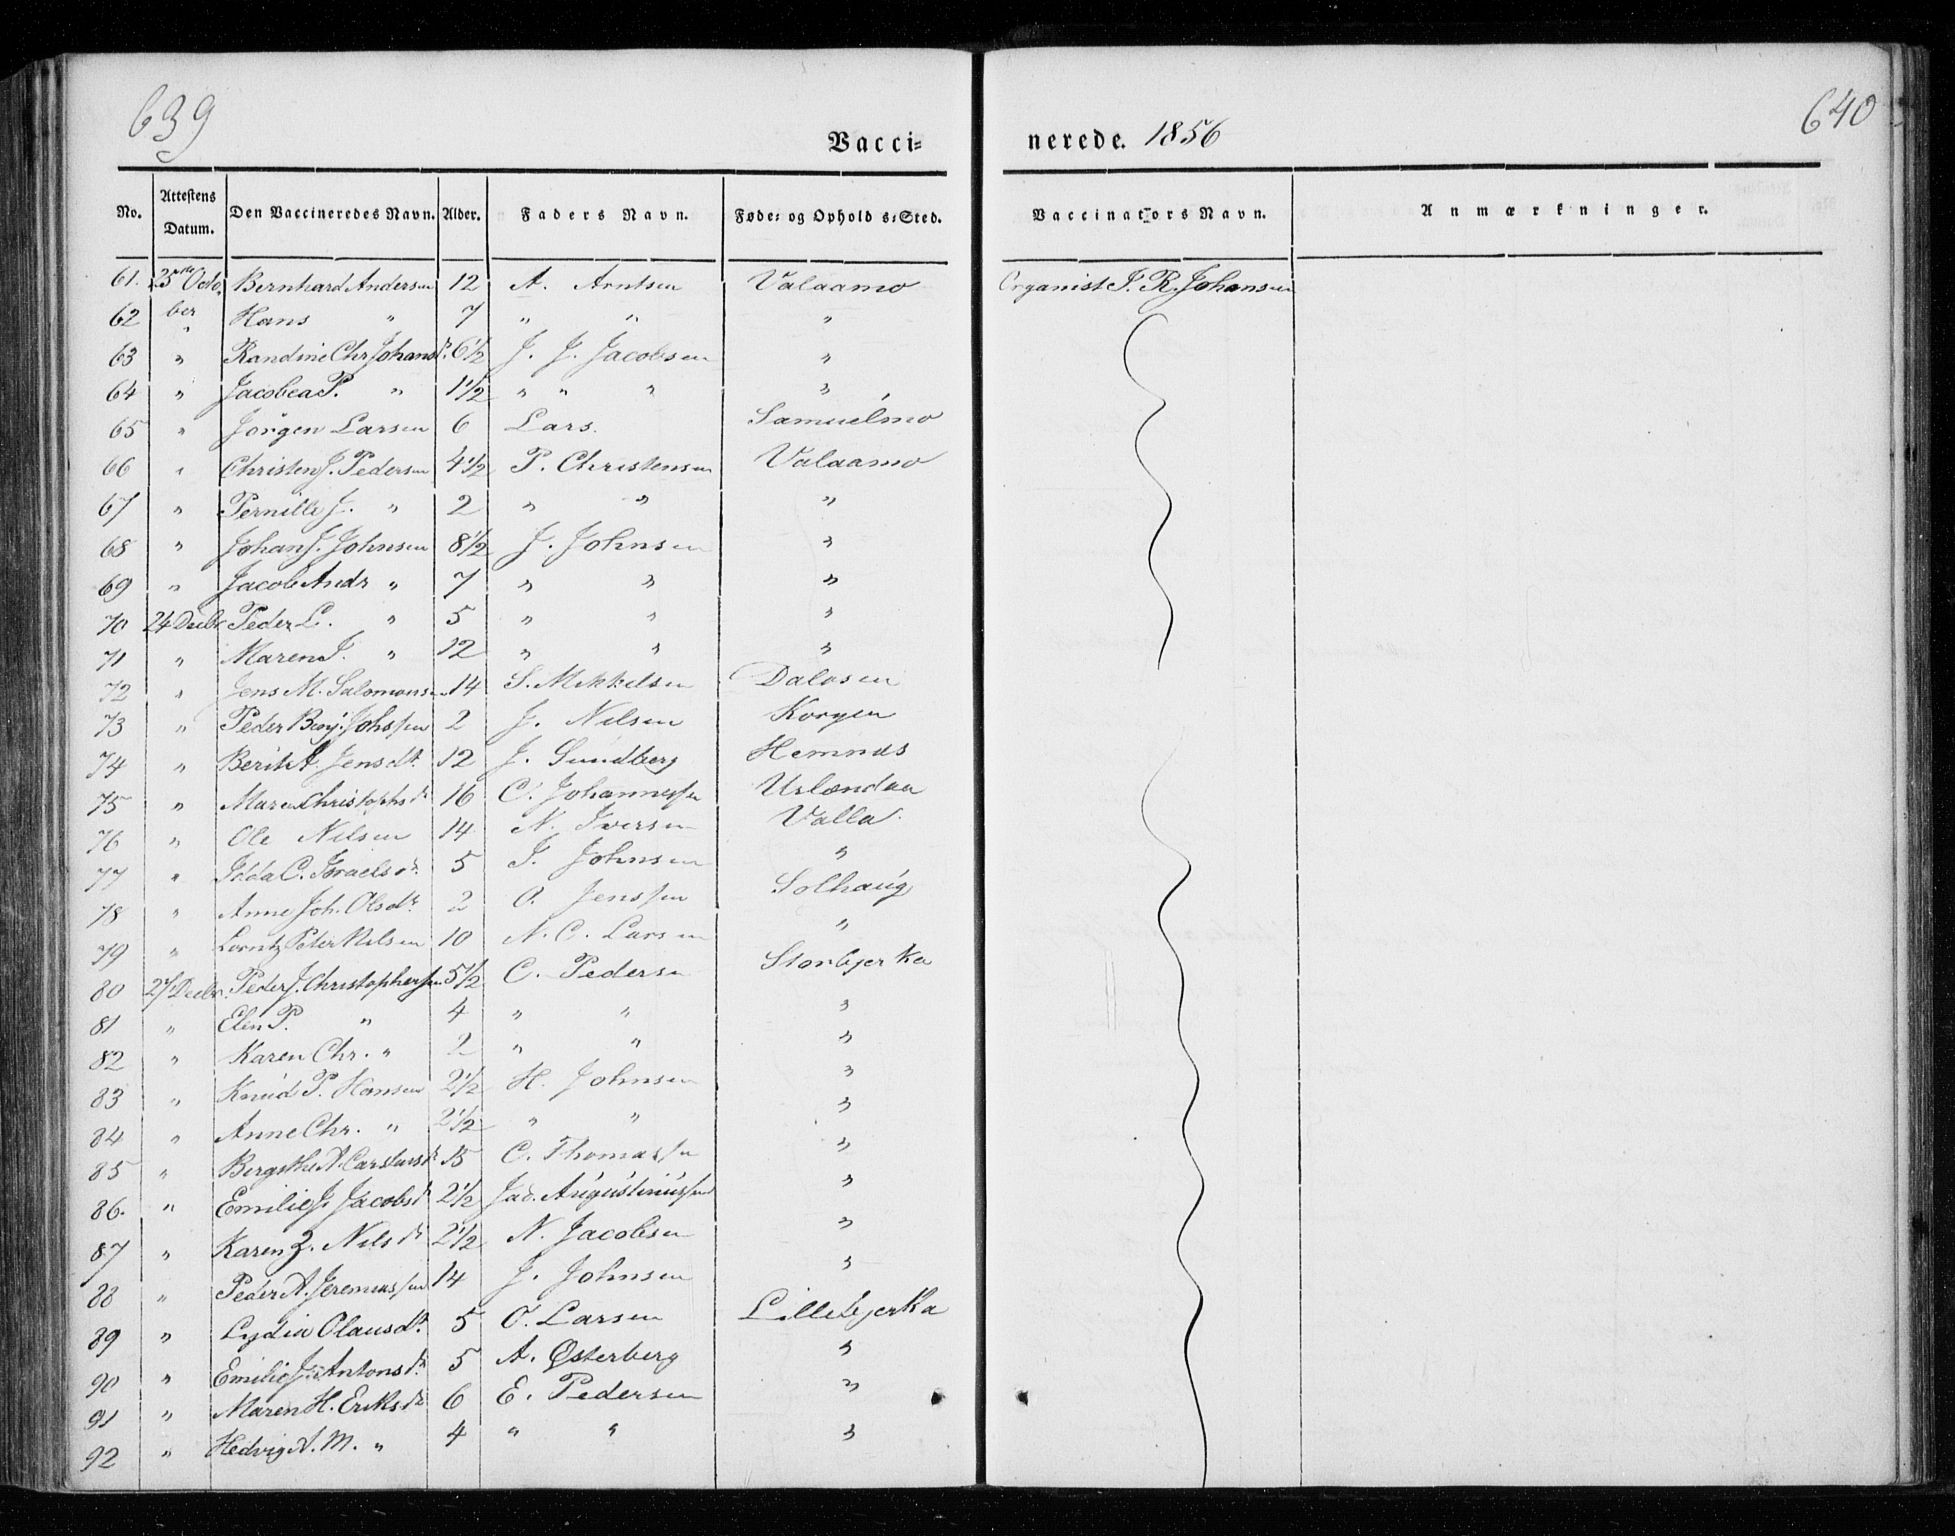 639
640
Vacci=
nerede. 1856
No. Attestens Datum. Den Vaccineredes Navn. Alder. Faders Navn. Føde= og Opholds=Sted. Vaccinators Navn. Anmærkninger.
61. 25de Octo Bernhard Andersen 12 A. Arntsen Valaamo Organist J. R. Johansen
62 ber " Hans " 7 " " "
63 " Randine Chr Johansdr. 6 1/2 J. J. Jacobsen "
64 " Jacobea P. " 1 1/2 " " " "
65 " Jörgen Larsen 6 Lars. Samuelmo
66 " Christen J. Pedersen 4 1/2 P. Christensen Valaamo
67 " Pernille J. " 2 " " "
68 " Johan J. Johnsen 8 1/2 J. Johnsen "
69 " Jacob Andr " 7 " " "
70 24 Decbr Peder C. " 5 " " "
71 " Maren J. " 12 " " "
72 " Jens M. Salomonsen 14 S. Mikkelsen Dalosen
73 " Peder Benj. Johssen 2 J. Nilsen Korgen
74 " Berit A. Jensdr. 12 J. Sundberg Hemnæs
75 " Maren Christophsdr 16 C. Johannessen Uslændaa
76 " Ole Nilsen 14 N. Iversen Valla.
77 " Idda C. Israelsdr. 5 I. Johnsen "
78 " Anne Joh. Olsdr. 2 O. Jenssen Solhaúg
79 " Lorntz Peter Nilsen 10 N. C. Larsen "
80 27 Decbr. Peder J. Christophersen 5 1/2 C. Pedersen Storbjerka
81 " Elen P. " 4 " " "
82 " Karen Chr. " 2 " " "
83 " Knúd P. Hansen 2 1/2 H. Johnsen "
84 " Anne Chr. " 2 1/2 " " "
85 " Bergithe A. Carstensdr 15 C. Thomassen "
86. " Emilie J. Jacobsdr 2 1/2 Jac. Aúgústinússen "
87 " Karen Z. Nilsdr 2 1/2 N. Jacobsen "
88 " Peder A. Jeremiassen 14 J. Johnsen "
89 " Lydia Olausdr. 5 O. Larsen Lillebjerka
90 " Emilie J. Antonsdr. 5 A. Østerberg "
91 " Maren H. Eriksdr 6 E. Pedersen "
92 " Hedvig A. M. " 4 " " "